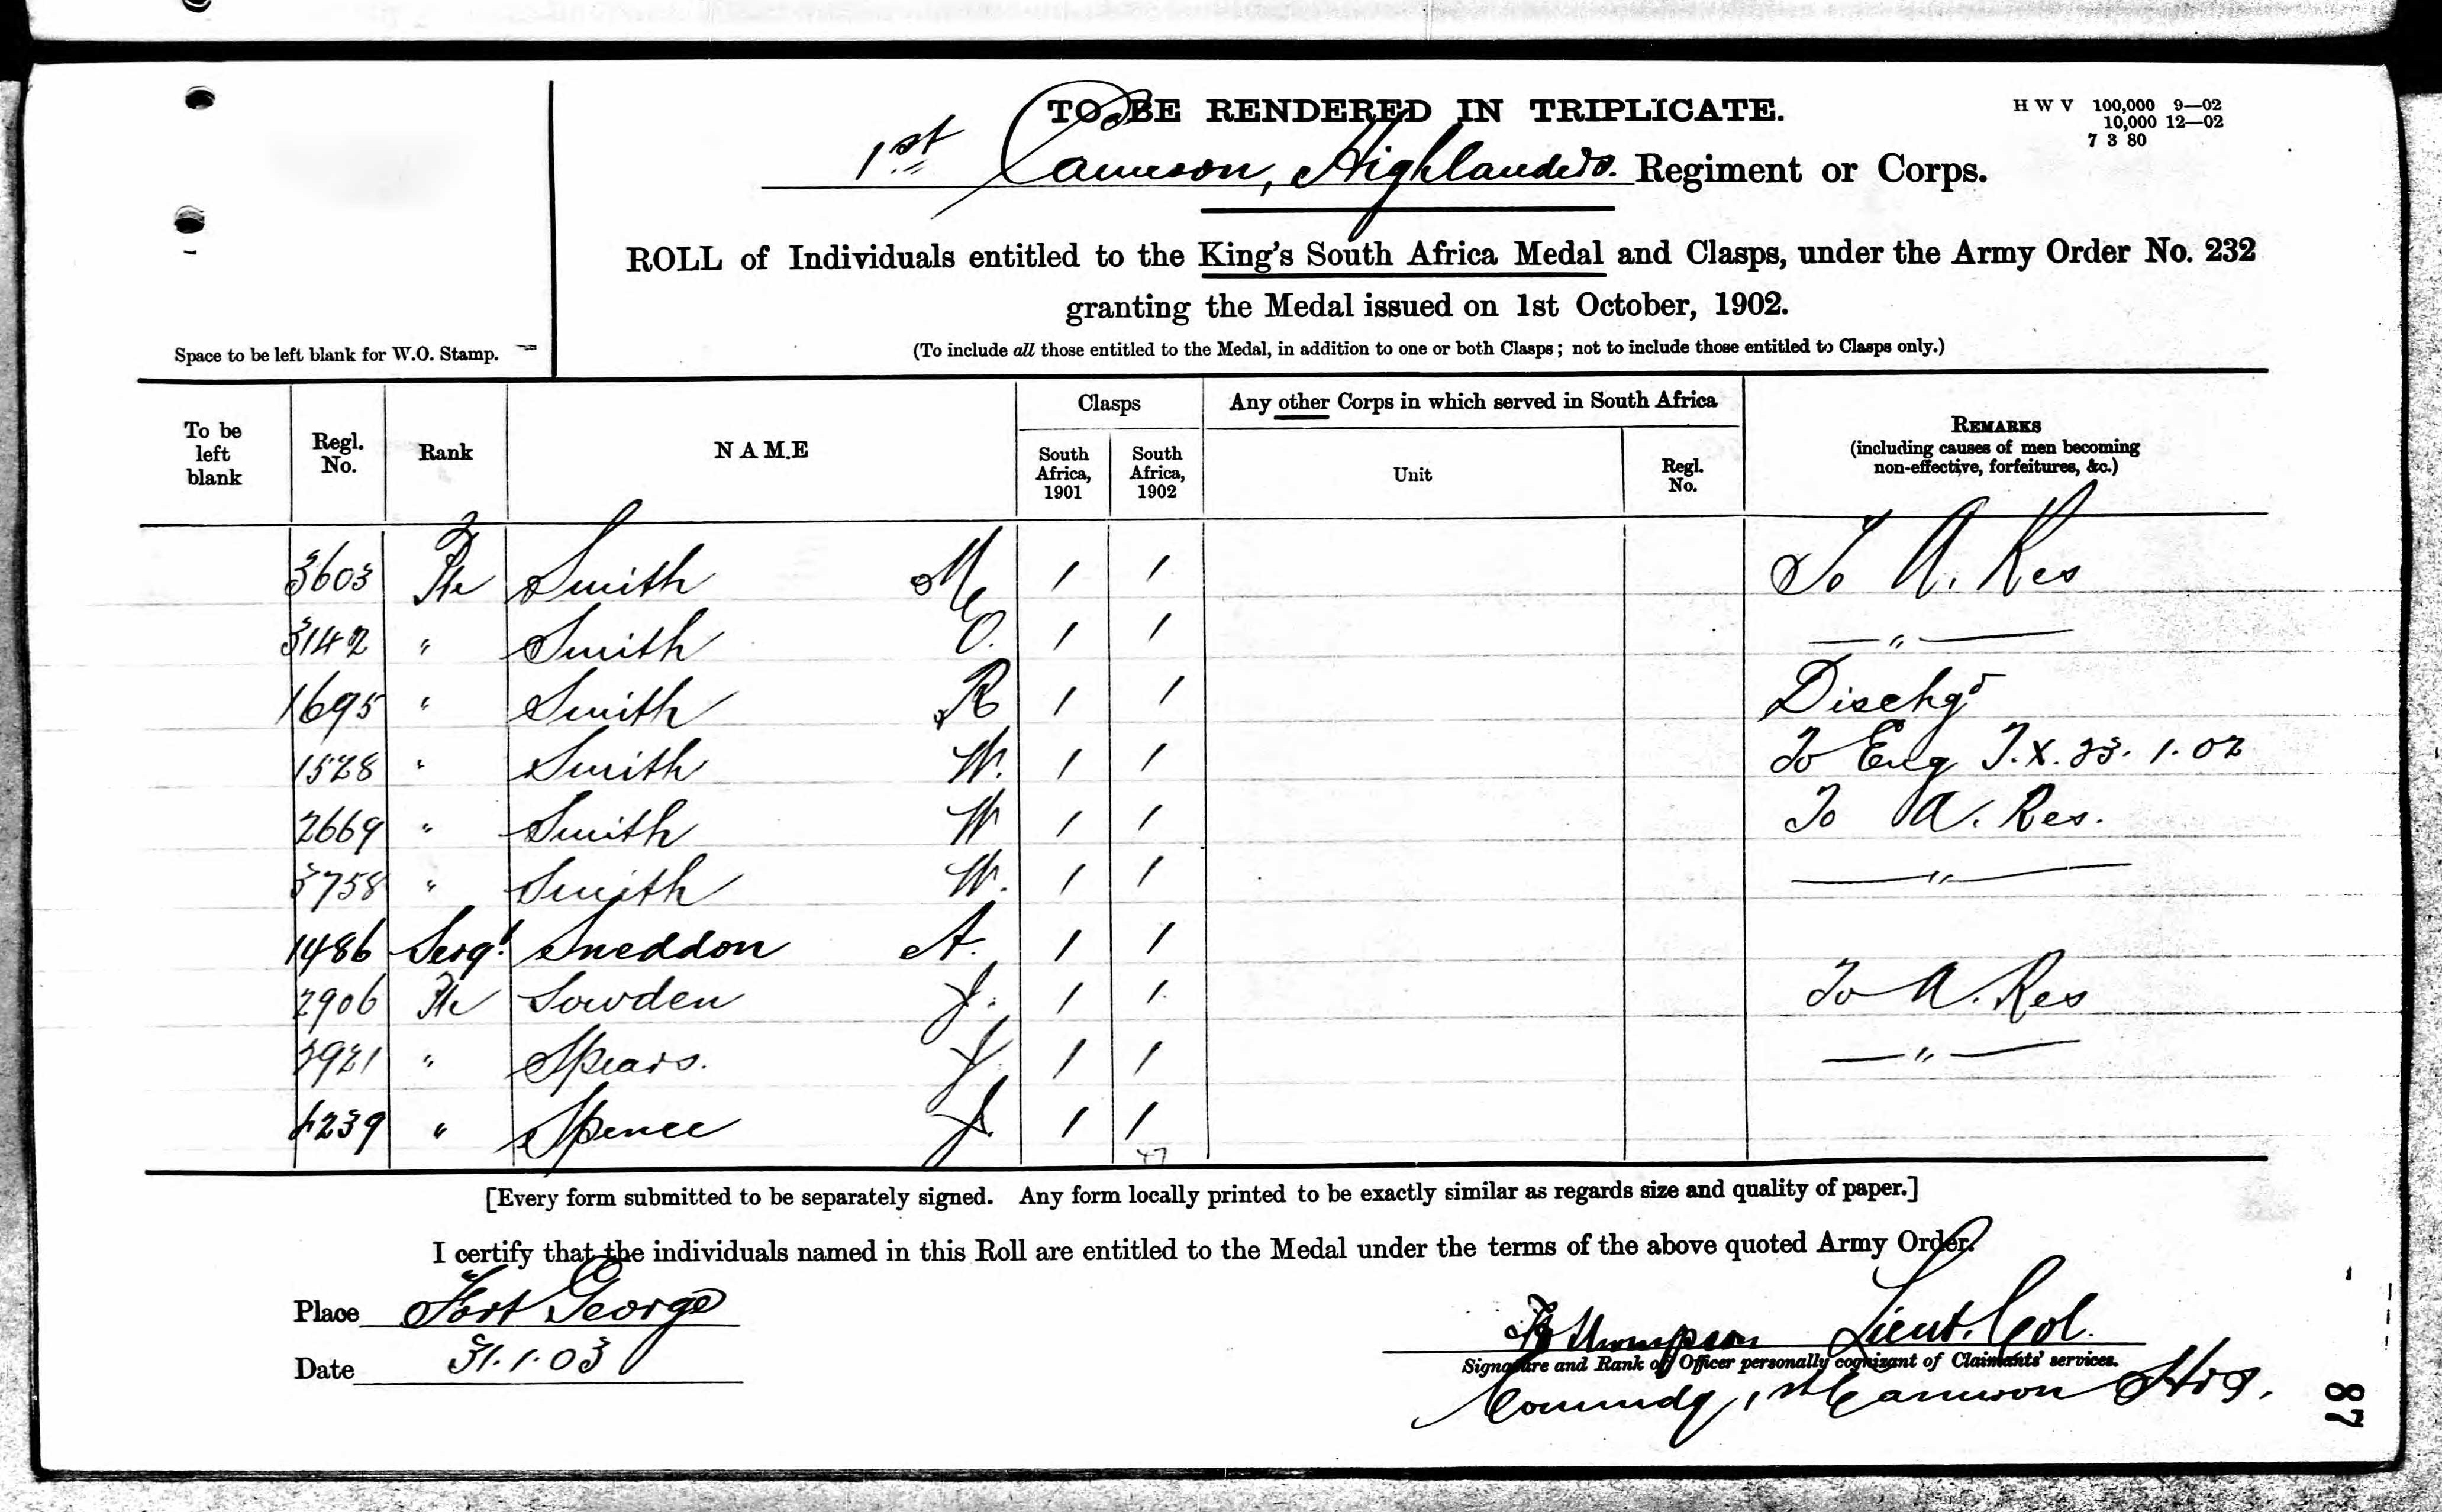 TO BE RENDERED IN TRIPLICATE.
H W V 100,000 9—02
10,000 12—02
7 3 80
1st Cameron, Highlanders. Regiment or Corps.
ROLL of Individuals entitled to the King's South Africa Medal and Clasps, under the Army Order No. 232
granting the Medal issued on 1st October, 1902.
Space to be left blank for W.O. Stamp.
(To include all those entitled to the Medal, in addition to one or both Clasps; not to include those entitled to Clasps only.)
To be left blank Regl. No. Rank NAME Clasps South Africa, 1901 South Africa, 1902 Any other Corps in which served in South Africa Unit Regl. No. REMARKS (including causes of men becoming non-effective, forfeitures, &c.)
3603 Pte Smith M 1 1 To A. Res
3142 " Smith O. 1 1 — " —
1695 " Smith R 1 1 Dischgd
1528 " Smith W. 1 1 To Eng T.X. 23. 1. 02
2669 " Smith W 1 1 To A. Res.
3758 " Smith W. 1 1 — " —
1486 Sergt Sneddon A. 1 1
2906 Pte Sowden J. 1 1 To A. Res
2921 " Spears. J. 1 1 — " —
4239 " Spence J. 1 1
[Every form submitted to be separately signed. Any form locally printed to be exactly similar as regards size and quality of paper.]
I certify that the individuals named in this Roll are entitled to the Medal under the terms of the above quoted Army Order.
Place Fort George
Date 31.1.03
Thompson Lieut. Col.
Signature and Rank of Officer personally cognizant of Claimants' services.
Commdg, 1st Cameron Hrs.
87